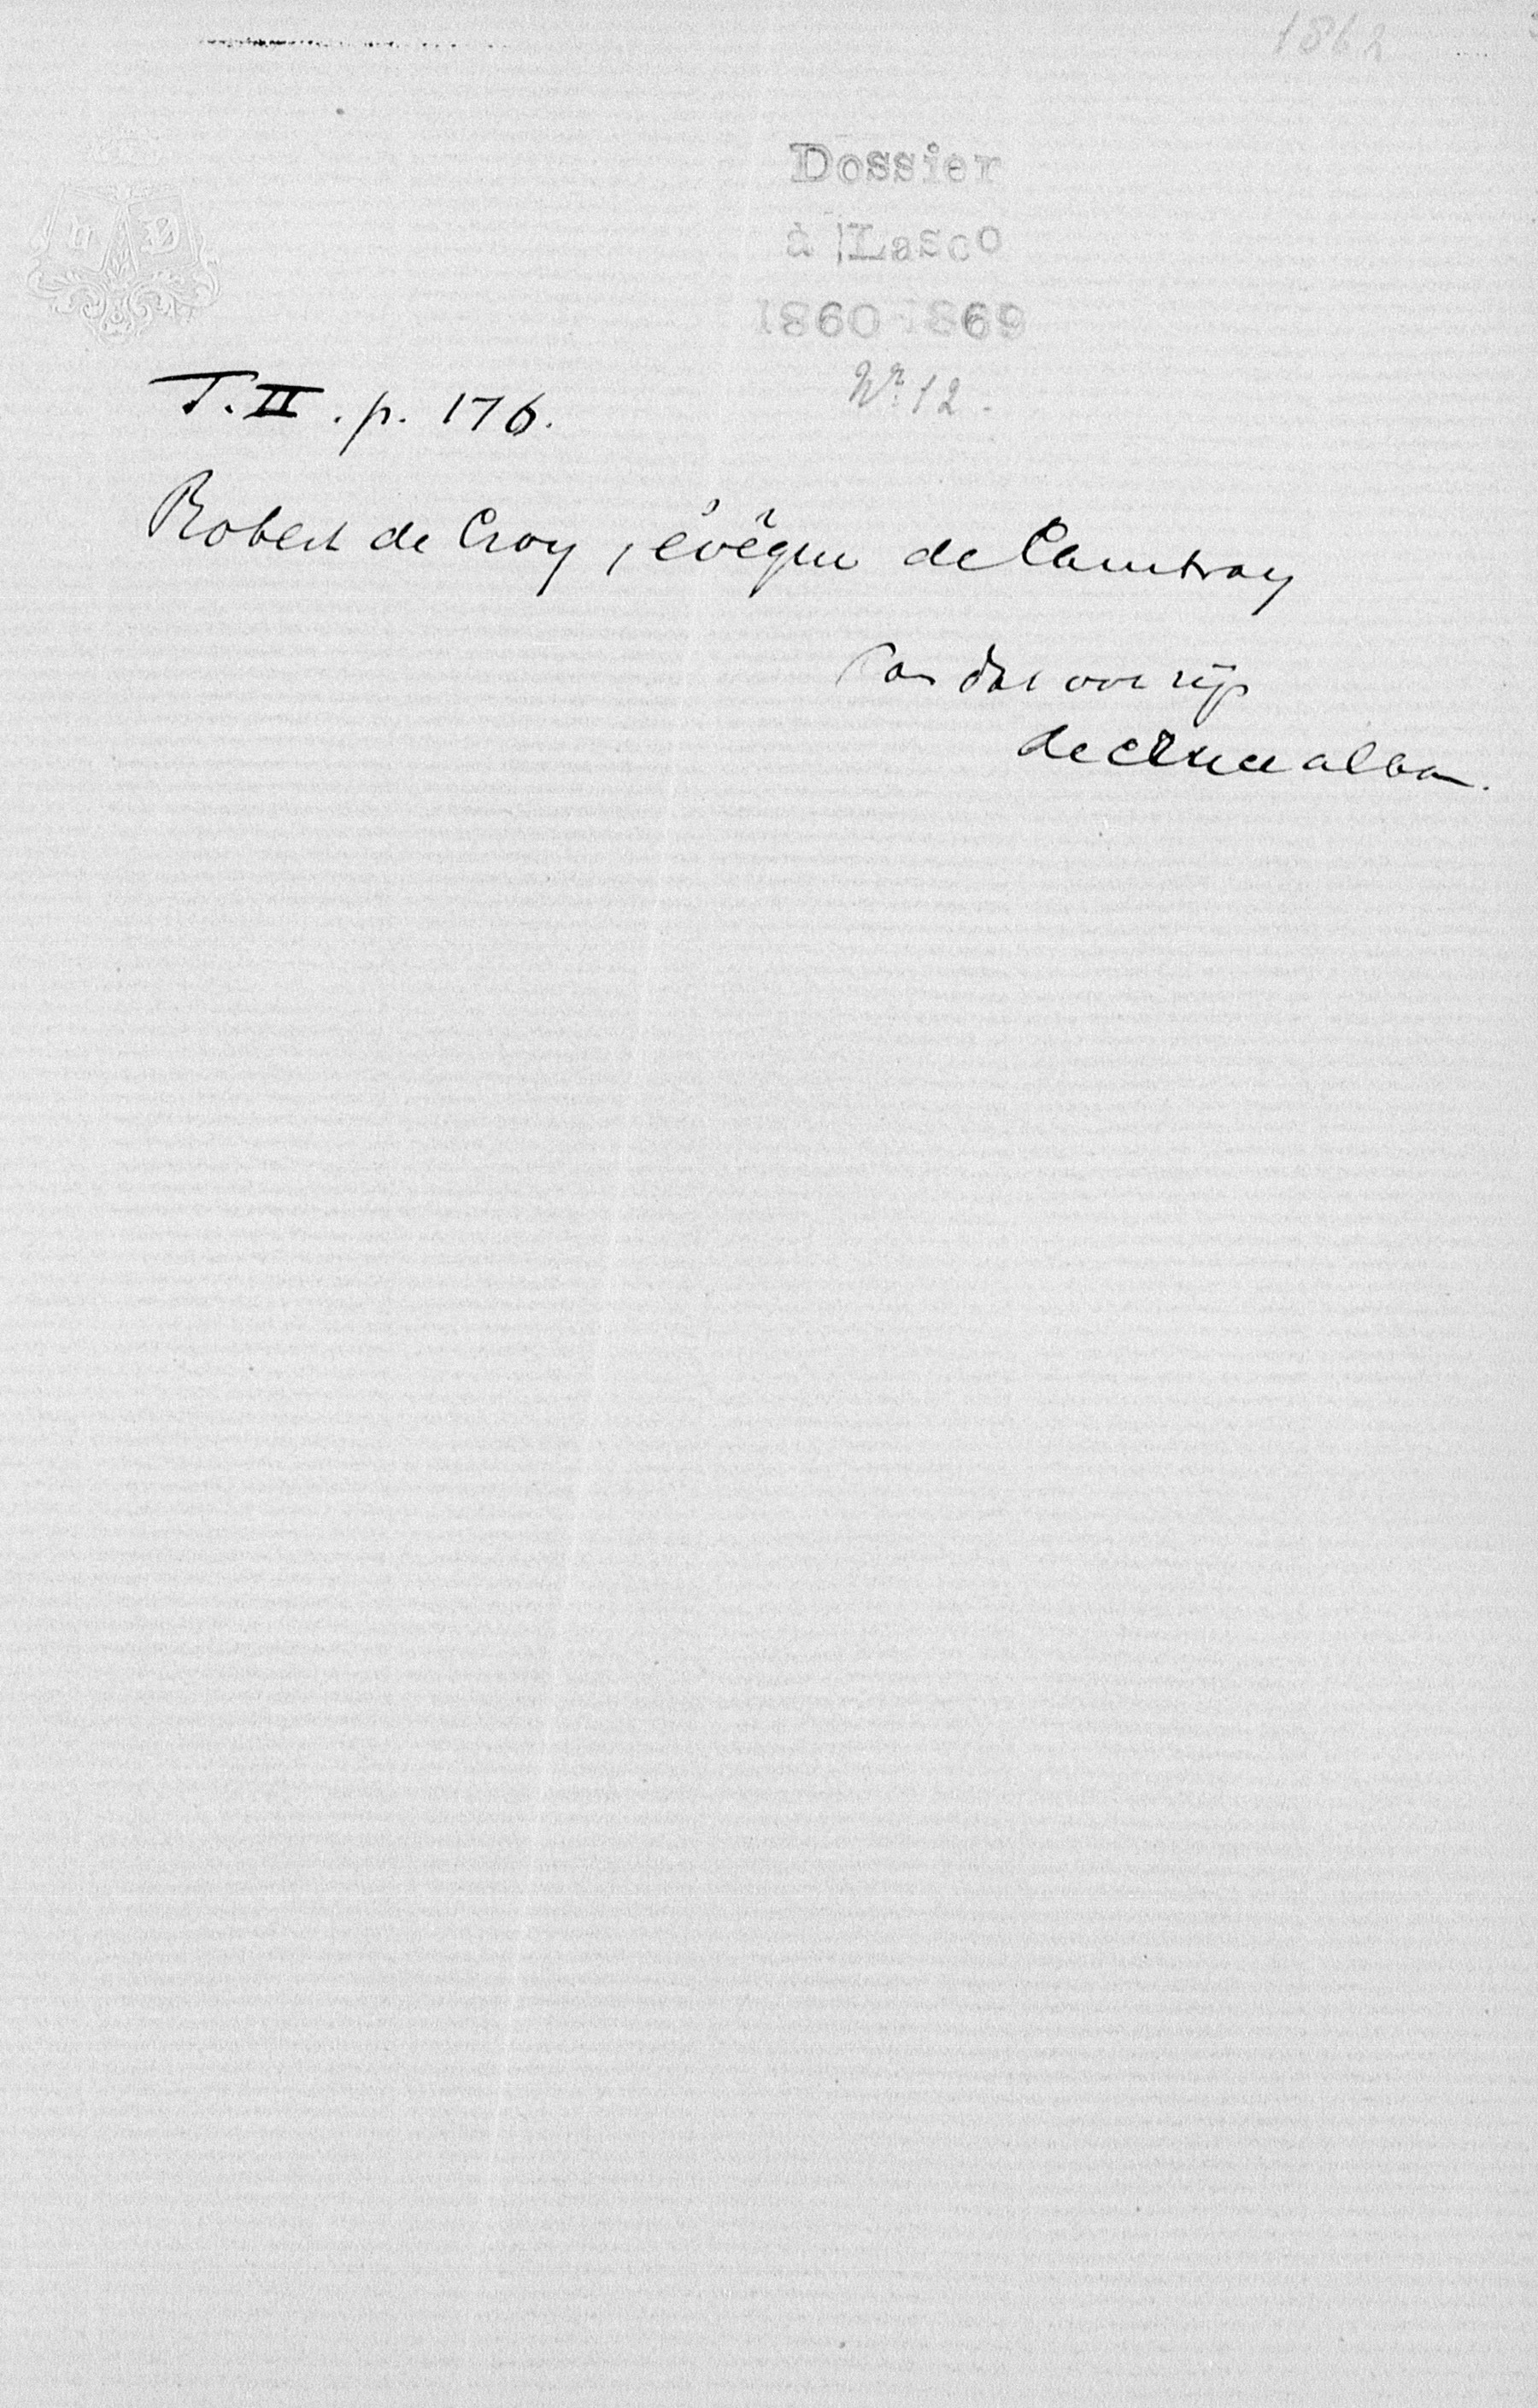 1862
Dossier
à Lasco
1860-1869
Nr. 12.
T. II. p. 176.
Robert de Croy, évêque de Cambray
de cruce alba.